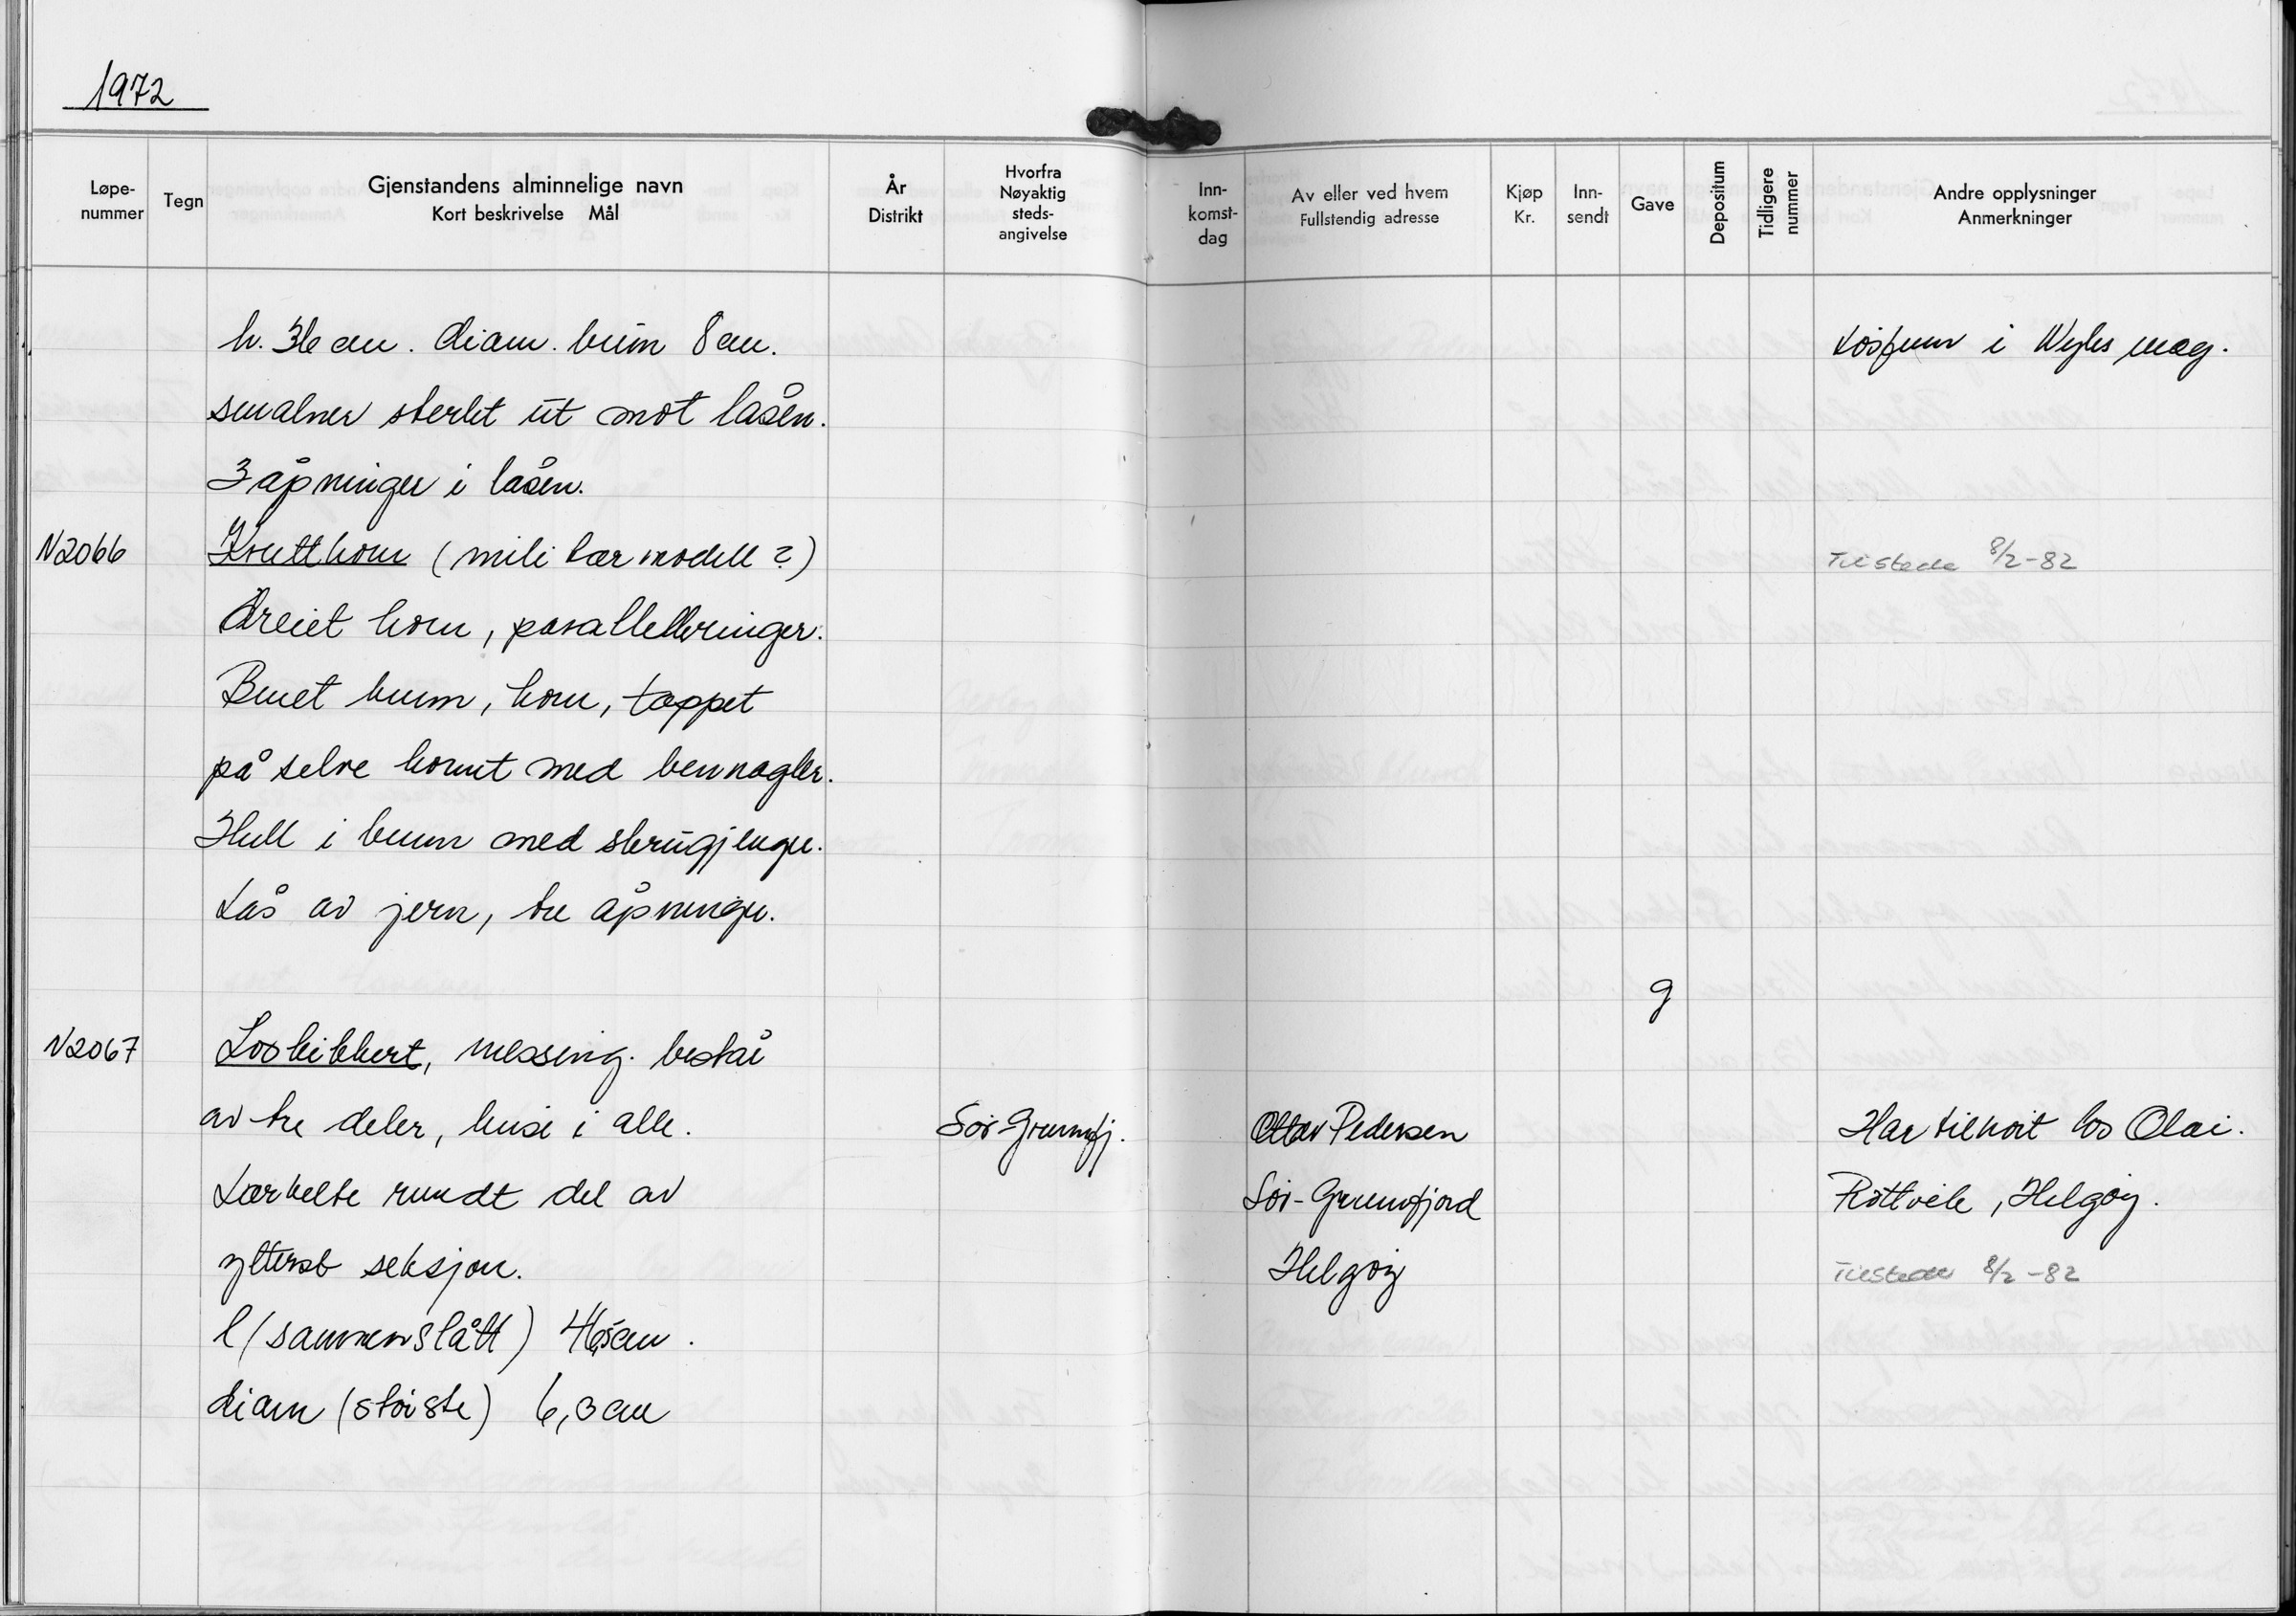 1972
Løpe-
nummer
Tegn
Gjenstandens alminnelige navn
Kort beskrivelse Mål
År
Distrikt
Hvorfra
Nøyaktig
steds-
angivelse
Inn-
komst-
dag
Av eller ved hvem
Fullstendig adresse
Kjøp
Kr.
Inn-
sendt
Gave
Depositum
Tidligere
nummer
Andre opplysninger
Anmerkninger
h. 36 cm. diam. bunn 8 cm.
i mag.
smalner sterkt ut mot låsen.
3 åpninger i låsen.
N2066 Krutthorn (militær modell?)
Tilstede 8/2-82
Dreiet horn, parallellringer.
Buet bunn, horn, tappet
på selve hornet med bennagler.
Hull i bunn med skrugjenger.
Lås av jern, tre åpninger.
g
N2067 Loskikkert, messing. består
av tre deler, linse i alle.
Sør-Grunnfj.
Ottar Pedersen
Har tilhørt los Olai.
Lærbelte rundt del av
Sør-Grunnfjord
Rottvik, Helgøy.
ytterst seksjon.
Helgøy
Tilstede 8/2-82
l (sammenslått) 46,5 cm.
diam (største) 6,3 cm